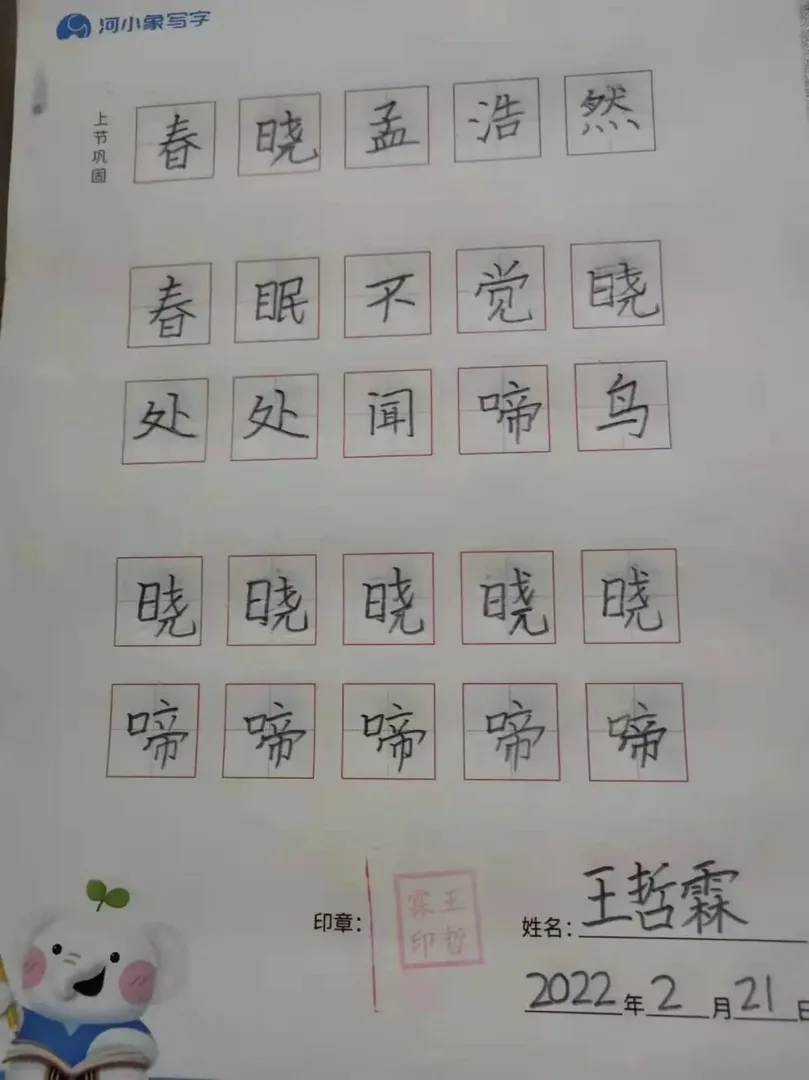 河小象写字
上节巩固
春晓孟浩然
春眠不觉晓
处处闻啼鸟
晓晓晓晓晓
啼啼啼啼啼
印章：
王哲霖印
姓名：王哲霖
2022年2月21日